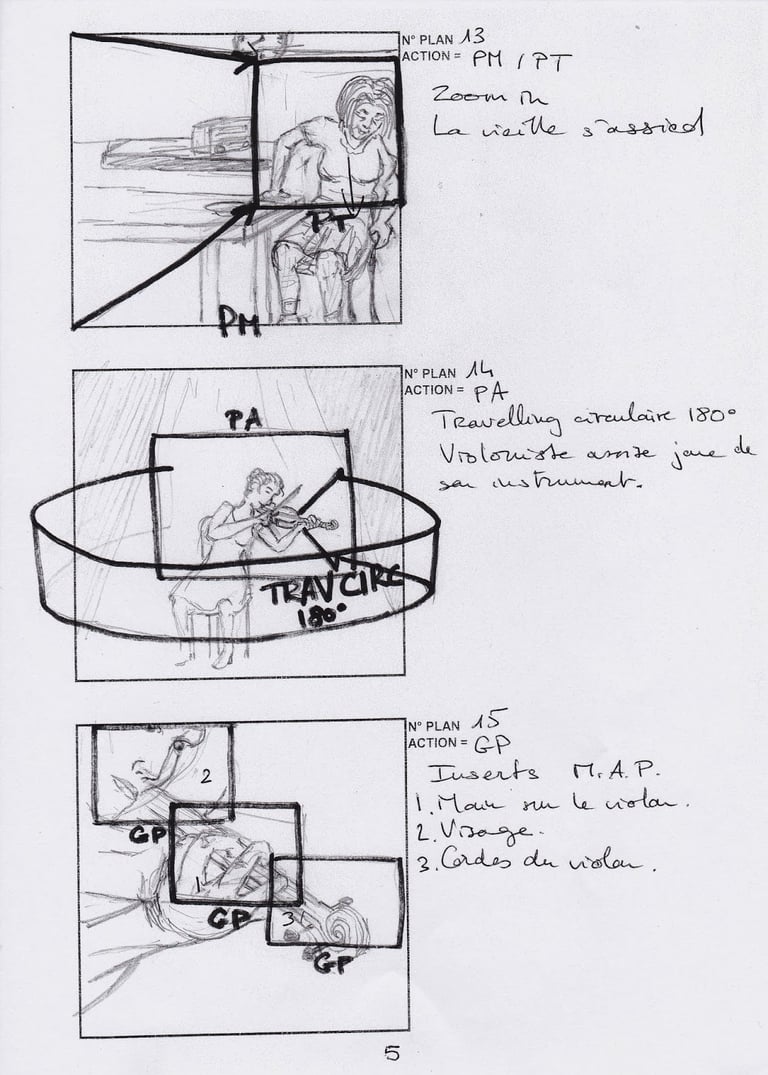 N° PLAN 13
ACTION = PM / PT
Zoom in
La vieille s'assied
PT
PM
N° PLAN 14
ACTION = PA
Travelling circulaire 180°
Violoniste assise joue de
son instrument.
PA
TRAV CIRC
180°
N° PLAN 15
ACTION = GP
Inserts M.A.P.
1. Main sur le violon.
2. Visage.
3. Cordes du violon.
2
GP
1
GP
3
GP
5